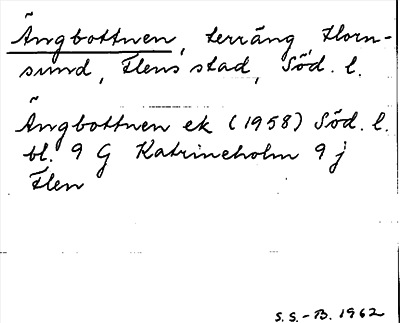 Ängbottnen, terräng, Horn-
sund, Flens stad, Söd. l.
Ängbottnen ek (1958) Söd. l.
bl. 9 G Katrineholm 9 j
Flen
S.S.-B. 1962